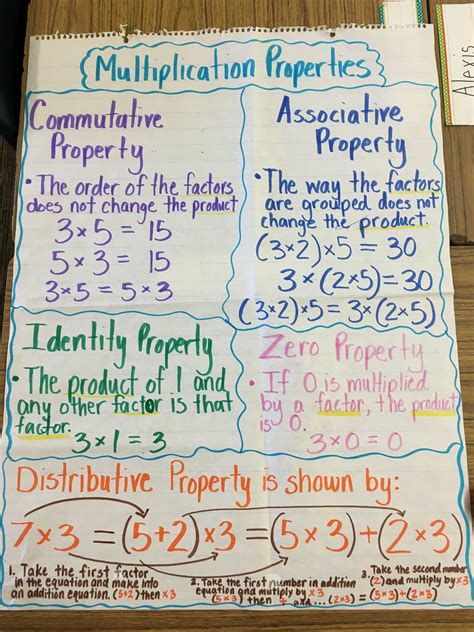 Multiplication Properties
Commutative
Property
• The order of the factors
does not change the product
3×5 = 15
5 × 3 = 15
3×5 = 5×3
Associative
Property
• The way the factors
are grouped does not
change the product.
(3×2)×5 = 30
3×(2×5)=30
(3×2)×5=3×(2×5)
Identity Property
• The product of 1 and
any other factor is that
factor.
3×1=3
Zero Property
• If 0 is multiplied
by a factor, the product
is 0.
3×0=0
Distributive Property is shown by:
7×3 =(5+2)×3 =(5×3)+(2×3)
1. Take the first factor
in the equation and make into
an addition equation. (5+2) then ×3
2. Take the first number in addition
equation and multiply by ×3
(5×3) then + and ... (2×3)
3. Take the second number
(2) and multiply by ×3
= (5×3)+(2×3)
Alexis